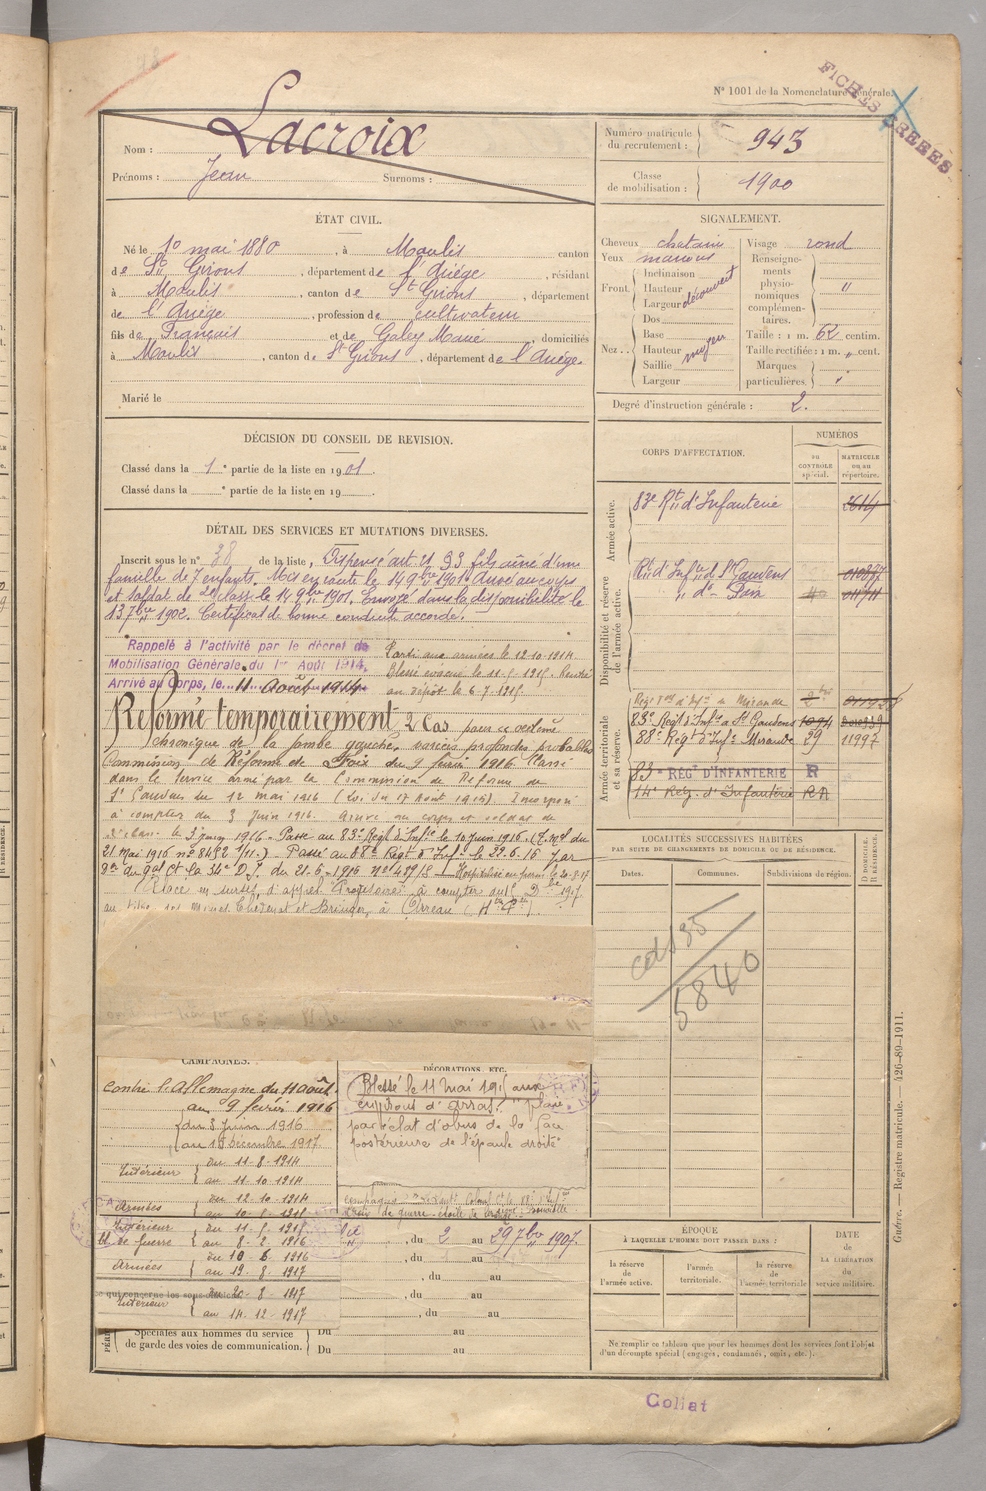 N° 1001 de la Nomenclature générale.
FICHES CREEES
Nom : Lacroix
Prénoms : Jean Surnoms :
Numéro matricule du recrutement : 943
Classe de mobilisation : 1900
ÉTAT CIVIL.
Né le 10 mai 1880, à Moulis canton
de St Girons, département de l'Ariège, résidant
à Moulis, canton de St Girons, département
de l'Ariège, profession de cultivateur
fils de François et de Galey Marie, domiciliés
à Moulis, canton de St Girons, département de l'Ariège.
Marié le
SIGNALEMENT.
Cheveux chatain
Yeux marrons
Front. Inclinaison
Hauteur
Largeur découvert
Nez.. Dos
Base
Hauteur moyen
Saillie
Largeur
Visage rond
Renseignements physionomiques complémentaires. "
Taille : 1 m. 62 centim.
Taille rectifiée : 1 m. " cent.
Marques particulières. "
Degré d'instruction générale : 2.
DÉCISION DU CONSEIL DE REVISION.
Classé dans la 1e partie de la liste en 1901.
Classé dans la e partie de la liste en 19
CORPS D'AFFECTATION.
NUMÉROS
au CONTROLE spécial.
MATRICULE ou au répertoire.
Armée active.
83e Rt d'Infanterie 2614
Disponibilité et réserve de l'armée active.
Rt d'Infie de St Gaudens
" do Foix
Armée territoriale et sa réserve.
83e Régt d'Infie à St Gaudens 1094
88e Régt d'Infie Mirande 29 11997
83e RÉGT D'INFANTERIE R
14e Rég. d'Infanterie
DÉTAIL DES SERVICES ET MUTATIONS DIVERSES.
Inscrit sous le n° 38 de la liste, Dispensé art 21 93 fils aîné d'une
famille de 7 enfants. Mis en route le 14 9bre 1901. Arrivé au corps
et soldat de 2e classe le 14 9bre 1901. Envoyé dans la disponibilité le
13 7bre 1902. Certificat de bonne conduite accordé.
Rappelé à l'activité par le décret de
Mobilisation Générale du 1er Août 1914.
Arrivé au Corps, le 11 Août 1914
Parti aux armées le 12-10-1914
Blessé évacué le 11-5-1915. Rentré
au dépôt le 6-7-1915.
Réformé temporairement 2 Cas pour œdème
chronique de la jambe gauche, varices profondes probables
Commission de Réforme de Foix du 9 février 1916. Classé
dans le Service armé par la Commission de Réforme de
St Gaudens du 12 mai 1916 (Loi du 17 Août 1915). Incorporé
à compter du 3 Juin 1916. Arrivé au corps et soldat de
2e classe le 3 juin 1916. Passé au 83e Régt d'Infie le 10 juin 1916. (T. Mel du
21 Mai 1916 n° 8492 1/11.) Passé au 88e Régt d'Infie le 22-6-16 par
du Gal Ct la 34e D.I. du 21-6-1916 Hospitalisé
Placé en sursis d'appel "Provisoire" à compter du
au titre des à Arreau (Htes Pées).
LOCALITÉS SUCCESSIVES HABITÉES
PAR SUITE DE CHANGEMENTS DE DOMICILE OU DE RÉSIDENCE.
Dates. Communes. Subdivisions de région.
D DOMICILE. R RÉSIDENCE.
5840
CAMPAGNES.
Contre l'Allemagne du 11 août
au 9 février 1916
du 3 Juin 1916
au 1 décembre 1917
Intérieur du 11-8-1914
au 11-10-1914
Armées du 12-10-1914
au 10-5-1915
Intérieur du 11-5-1915
bl. de Guerre au 8-2-1916
Armées du 10-6-1916
au 19-8-1917
Intérieur du 20-8-1917
au 14-12-1917
DÉCORATIONS, ETC.
Blessé le 11 mai 1915 aux
environs d'Arras. "plaie
par éclat d'obus de la face
postérieure de l'épaule droite"
, du 2 au 29 7bre 1907.
, du au
, du au
, du au
, du au
Spéciales aux hommes du service
de garde des voies de communication.
Du au
Du au
ÉPOQUE
À LAQUELLE L'HOMME DOIT PASSER DANS :
la réserve de l'armée active.
l'armée territoriale.
la réserve de l'armée territoriale
DATE de la LIBÉRATION du service militaire.
Ne remplir ce tableau que pour les hommes dont les services font l'objet
d'un décompte spécial (engagés, condamnés, omis, etc.).
Guéret. — Registre matricule. — 426-89-1911.
Goliat